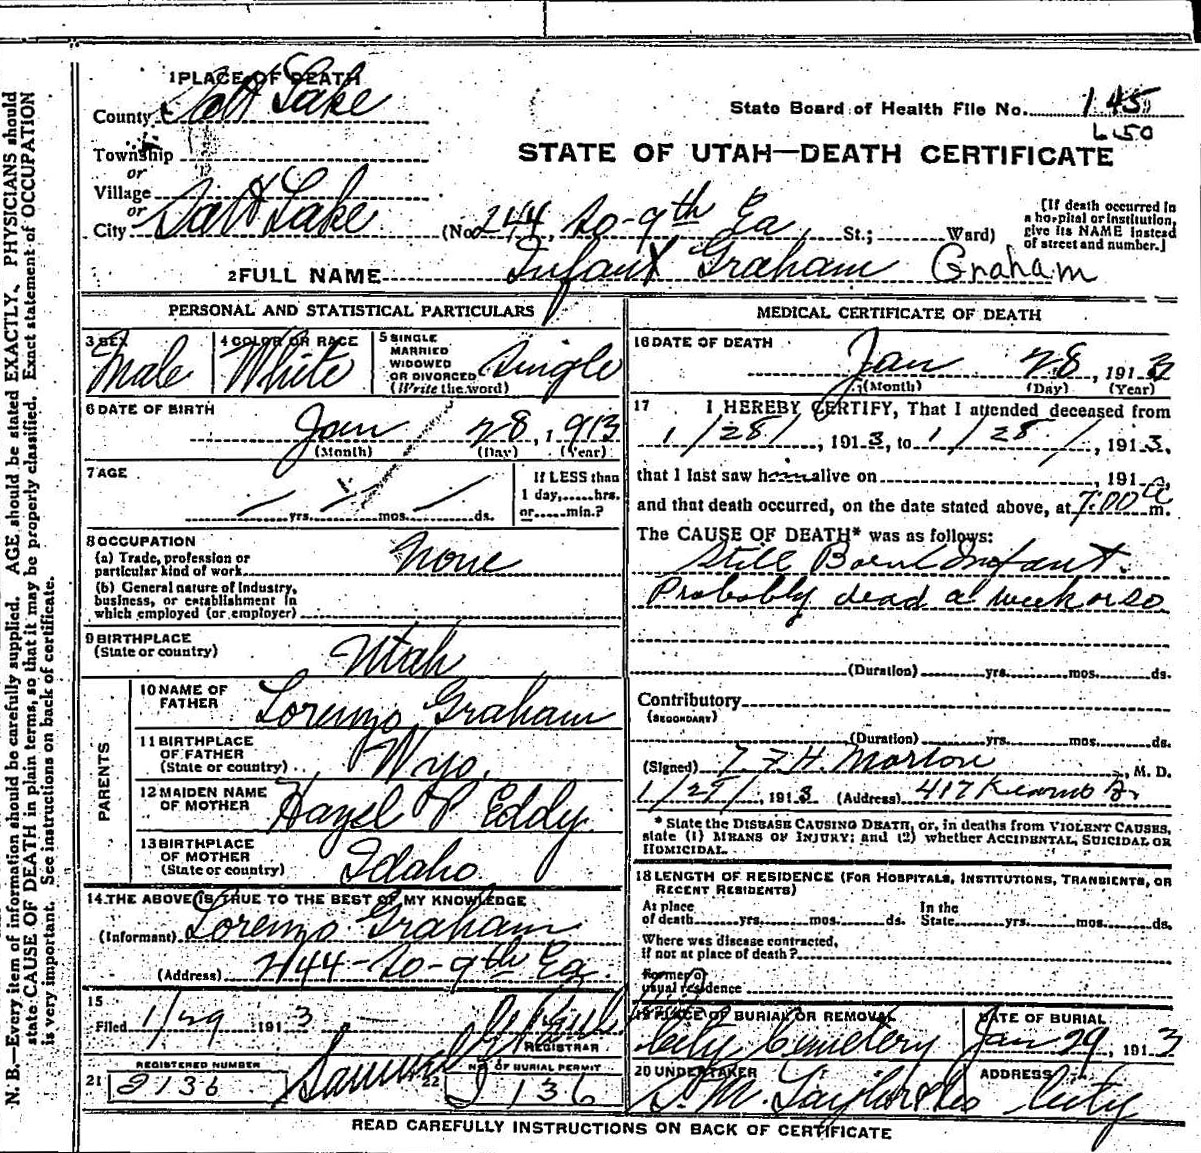 1 PLACE OF DEATH
County Salt Lake
State Board of Health File No. 145
L 50
Township
or
Village
or
City Salt Lake
STATE OF UTAH—DEATH CERTIFICATE
(No. 244, So-9th Ea St.; Ward)
[If death occurred in
a hospital or institution,
give its NAME instead
of street and number.]
2 FULL NAME Infant Graham Graham
PERSONAL AND STATISTICAL PARTICULARS
3 SEX
Male
4 COLOR OR RACE
White
5 SINGLE
MARRIED
WIDOWED
OR DIVORCED
(Write the word)
Single
6 DATE OF BIRTH
Jan 28, 1913
(Month) (Day) (Year)
7 AGE
yrs. mos. ds.
If LESS than
1 day,.....hrs.
or.....min.?
8 OCCUPATION
(a) Trade, profession or
particular kind of work None
(b) General nature of Industry,
business, or establishment in
which employed (or employer)
9 BIRTHPLACE
(State or country) Utah
PARENTS
10 NAME OF
FATHER Lorenzo Graham
11 BIRTHPLACE
OF FATHER
(State or country) Wyo.
12 MAIDEN NAME
OF MOTHER Hazel P Eddy
13 BIRTHPLACE
OF MOTHER
(State or country) Idaho.
14 THE ABOVE IS TRUE TO THE BEST OF MY KNOWLEDGE
(Informant) Lorenzo Graham
(Address) 244-So-9th Ea.
15
Filed 1/29 1913
REGISTRAR
REGISTERED NUMBER
21 2136
Samuel
22 NO. OF BURIAL PERMIT
2136
MEDICAL CERTIFICATE OF DEATH
16 DATE OF DEATH
Jan 28, 1913
(Month) (Day) (Year)
17 I HEREBY CERTIFY, That I attended deceased from
1/28/, 1913, to 1/28/, 1913,
that I last saw him alive on , 191 ,
and that death occurred, on the date stated above, at 7:00 a m.
The CAUSE OF DEATH* was as follows:
Still Born Infant.
Probably dead a week or so
(Duration) yrs. mos. ds.
Contributory
(SECONDARY)
(Duration) yrs. mos. ds.
(Signed) H. , M. D.
1/29/, 1913 (Address) 417 Kearns B
* State the DISEASE CAUSING DEATH, or, in deaths from VIOLENT CAUSES,
state (1) MEANS OF INJURY; and (2) whether ACCIDENTAL, SUICIDAL OR
HOMICIDAL.
18 LENGTH OF RESIDENCE (FOR HOSPITALS, INSTITUTIONS, TRANSIENTS, OR
RECENT RESIDENTS)
At place
of death yrs. mos. ds.
In the
State yrs. mos. ds.
Where was disease contracted,
if not at place of death?
Former or
usual residence
19 PLACE OF BURIAL OR REMOVAL
City Cemetery
DATE OF BURIAL
Jan 29, 1913
20 UNDERTAKER
S. M. Taylor & Co
ADDRESS
City
READ CAREFULLY INSTRUCTIONS ON BACK OF CERTIFICATE
N. B.—Every item of information should be carefully supplied. AGE should be stated EXACTLY. PHYSICIANS should
state CAUSE OF DEATH in plain terms, so that it may be properly classified. Exact statement of OCCUPATION
is very important. See instructions on back of certificate.